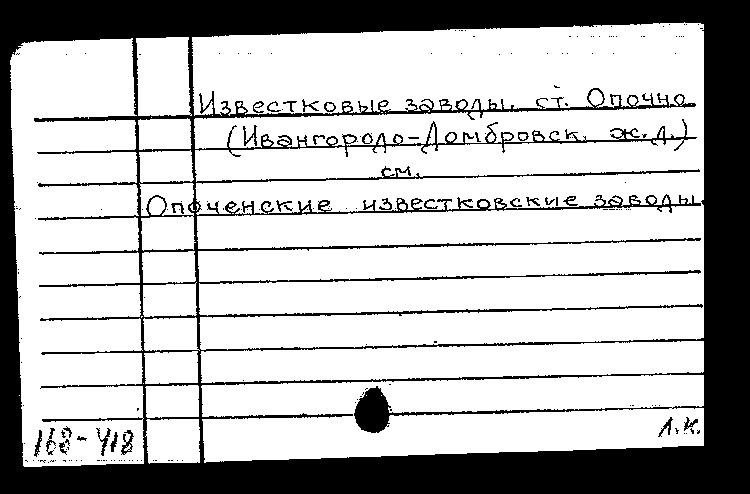 Известковые заводы. ст. Опочно
(Ивангородо-Домбровск. ж. д.)
см.
Опоченские известковские заводы.
168-418
Л.К.